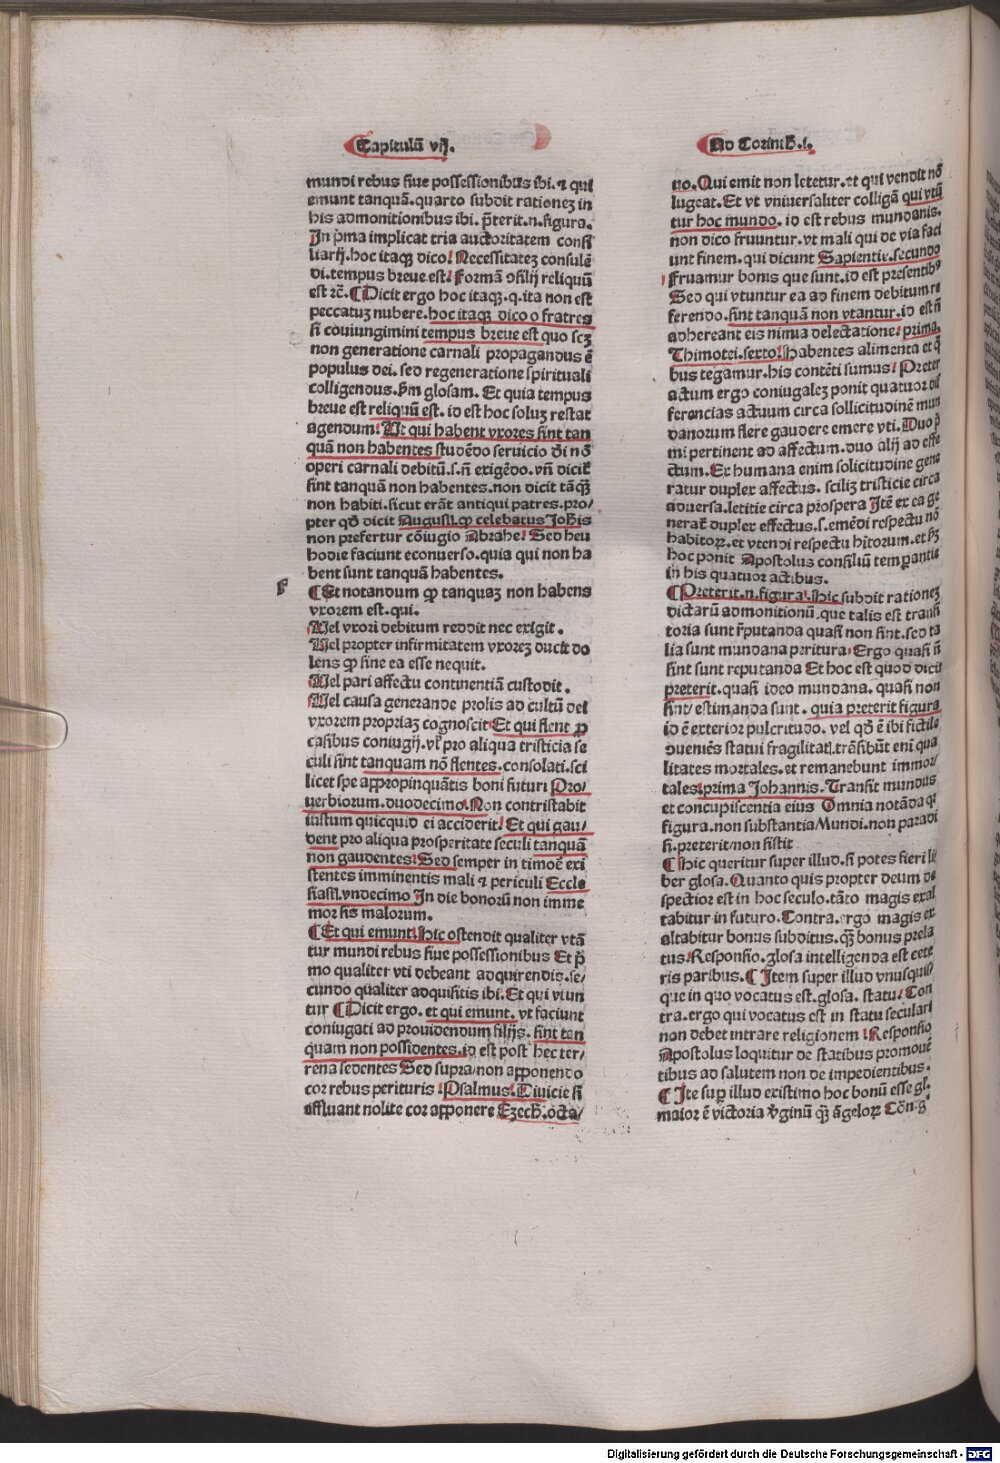 Capitulū vij.
mundi rebus siue possessionibus ibi. ⁊ qui
emunt tanquā. quarto subdit rationeꝫ in
his admonitionibus ibi. p̄terit.n.figura.
In p̄ma implicat tria auctoritatem consi
liarij. hoc itaqꝫ dico! Necessitateꝫ consulē
di. tempus breue est! Formā ↄsilij reliquū
est ꝛc̄. ¶ Dicit ergo hoc itaqꝫ. q. ita non est
peccatuꝫ nubere. hoc itaqꝫ dico o fratres
si coniungimini tempus breue est quo scꝫ
non generatione carnali propagandus ē
populus dei. sed regeneratione spirituali
colligendus. ẜm glosam. Et quia tempus
breue est reliquū est. id est hoc soluꝫ restat
agendum! Ut qui habent vxores sint tan
quā non habentes studēdo seruicio dī nō
operi carnali debitū.s.ñ exigēdo. vñ dicit̄
sint tanquā non habentes. non dicit tāqꝫ
non habiti. sicut erāt antiqui patres. pro/
pter qd̄ dicit Augusti. ꝙ celebatus Joh̄is
non prefertur cōiugio Abrahe! Sed heu
hodie faciunt econuerso. quia qui non ha
bent sunt tanquā habentes.
F
¶ Et notandum ꝙ tanquaꝫ non habens
vxorem est. qui.
Uel vxori debitum reddit nec exigit.
Uel propter infirmitatem vxoreꝫ ducit do
lens ꝙ sine ea esse nequit.
Uel pari affectu continentiā custodit.
Uel causa generande prolis ad cultū dei
vxorem propriaꝫ cognoscit Et qui flent ꝓ
casibus coniugij. vl̄ pro aliqua tristicia se
culi sint tanquam nō flentes. consolati. sci
licet spe appropinquātis boni futuri Pro/
uerbiorum. duodecimo. Non contristabit
iustum quicquid ei acciderit! Et qui gau/
dent pro aliqua prosperitate seculi tanquā
non gaudentes! Sed semper in timoē exi
stentes imminentis mali ⁊ periculi Eccle
siasti. vndecimo In die bonorū non imme
mor sis malorum.
¶ Et qui emunt! hic ostendit qualiter vtā
tur mundi rebus siue possessionibus Et p̄
mo qualiter vti debeant adquirendis. se/
cundo qualiter adquisitis ibi. Et qui vtun
tur ¶ Dicit ergo. et qui emunt. vt faciunt
coniugati ad prouidendum filijs. sint tan
quam non possidentes. id est post hec ter/
rena sedentes Sed supra/non apponendo
cor rebus perituris! Psalmus! Diuicie si
affluant nolite cor apponere Ezech. octa/
Ad Corinth̄.i.
uo. Qui emit non letetur. et qui vendit nō
lugeat. Et vt vniuersaliter colligā qui vtū
tur hoc mundo. id est rebus mundanis.
non dico fruuntur. vt mali qui de via faci
unt finem. qui dicunt Sapientie. secundo
Fruamur bonis que sunt. id est presentibꝰ
Sed qui vtuntur ea ad finem debitum re
ferendo. sint tanquā non vtantur. id est ñ
adhereant eis nimia delectatione! prima.
Thimotei. sexto! Habentes alimenta et q̄
bus tegamur. his contēti sumus! Preter
actum ergo coniugaleꝫ ponit quatuor dif
ferencias actuum circa sollicitudinē mun
danorum flere gaudere emere vti. Duo p̄
mi pertinent ad affectum. duo alij ad effe
ctum. Ex humana enim solicitudine gene
ratur duplex affectus. sciliꝫ tristicie circa
aduersa. letitie circa prospera Itē ex ea ge
nerat̄ duplex effectus.s. emēdi respectu nō
habitoꝝ. et vtendi respectu h̄itorum. et ẜm
hoc ponit Apostolus consilium temꝑantie
in his quatuor actibus.
¶ Preterit.n.figura! Hic subdit rationeꝫ
dictarū admonitionū. que talis est transi
toria sunt r̄putanda quasi non sint. sed ta
lia sunt mundana peritura. Ergo quasi ñ
sint sunt reputanda Et hoc est quod dicit
preterit. quasi ideo mundana. quasi non
sint/ estimanda sunt. quia preterit figura
id ē exterior pulcritudo. vel qd̄ ē ibi fictile
ↄueniēs statui fragilitati. trāsibūt eni qua
litates mortales. et remanebunt immor/
tales! prima Johannis. Transit mundus
et concupiscentia eius Omnia notāda qꝛ
figura. non substantia Mundi. non paradi
si. preterit/non sistit
¶ Hic queritur super illud. si potes fieri li
ber glosa. Quanto quis propter deum de
spectior est in hoc seculo. tāto magis exal
tabitur in futuro. Contra. ergo magis ex
altabitur bonus subditus. q̄ꝫ bonus prela
tus! Responsio. glosa intelligenda est cete
ris paribus. ¶ Item super illud vnusquis/
que in quo vocatus est. glosa. statu! Con
tra. ergo qui vocatus est in statu seculari
non debet intrare religionem! Responsio
Apostolus loquitur de statibus promouē
tibus ad salutem non de impedientibus.
¶ Ite suꝑ illud existimo hoc bonū esse gl.
maior ē victoria v̄ginū q̄ꝫ āgeloꝝ Cōn.g̊
Digitalisierung gefördert durch die Deutsche Forschungsgemeinschaft - DFG